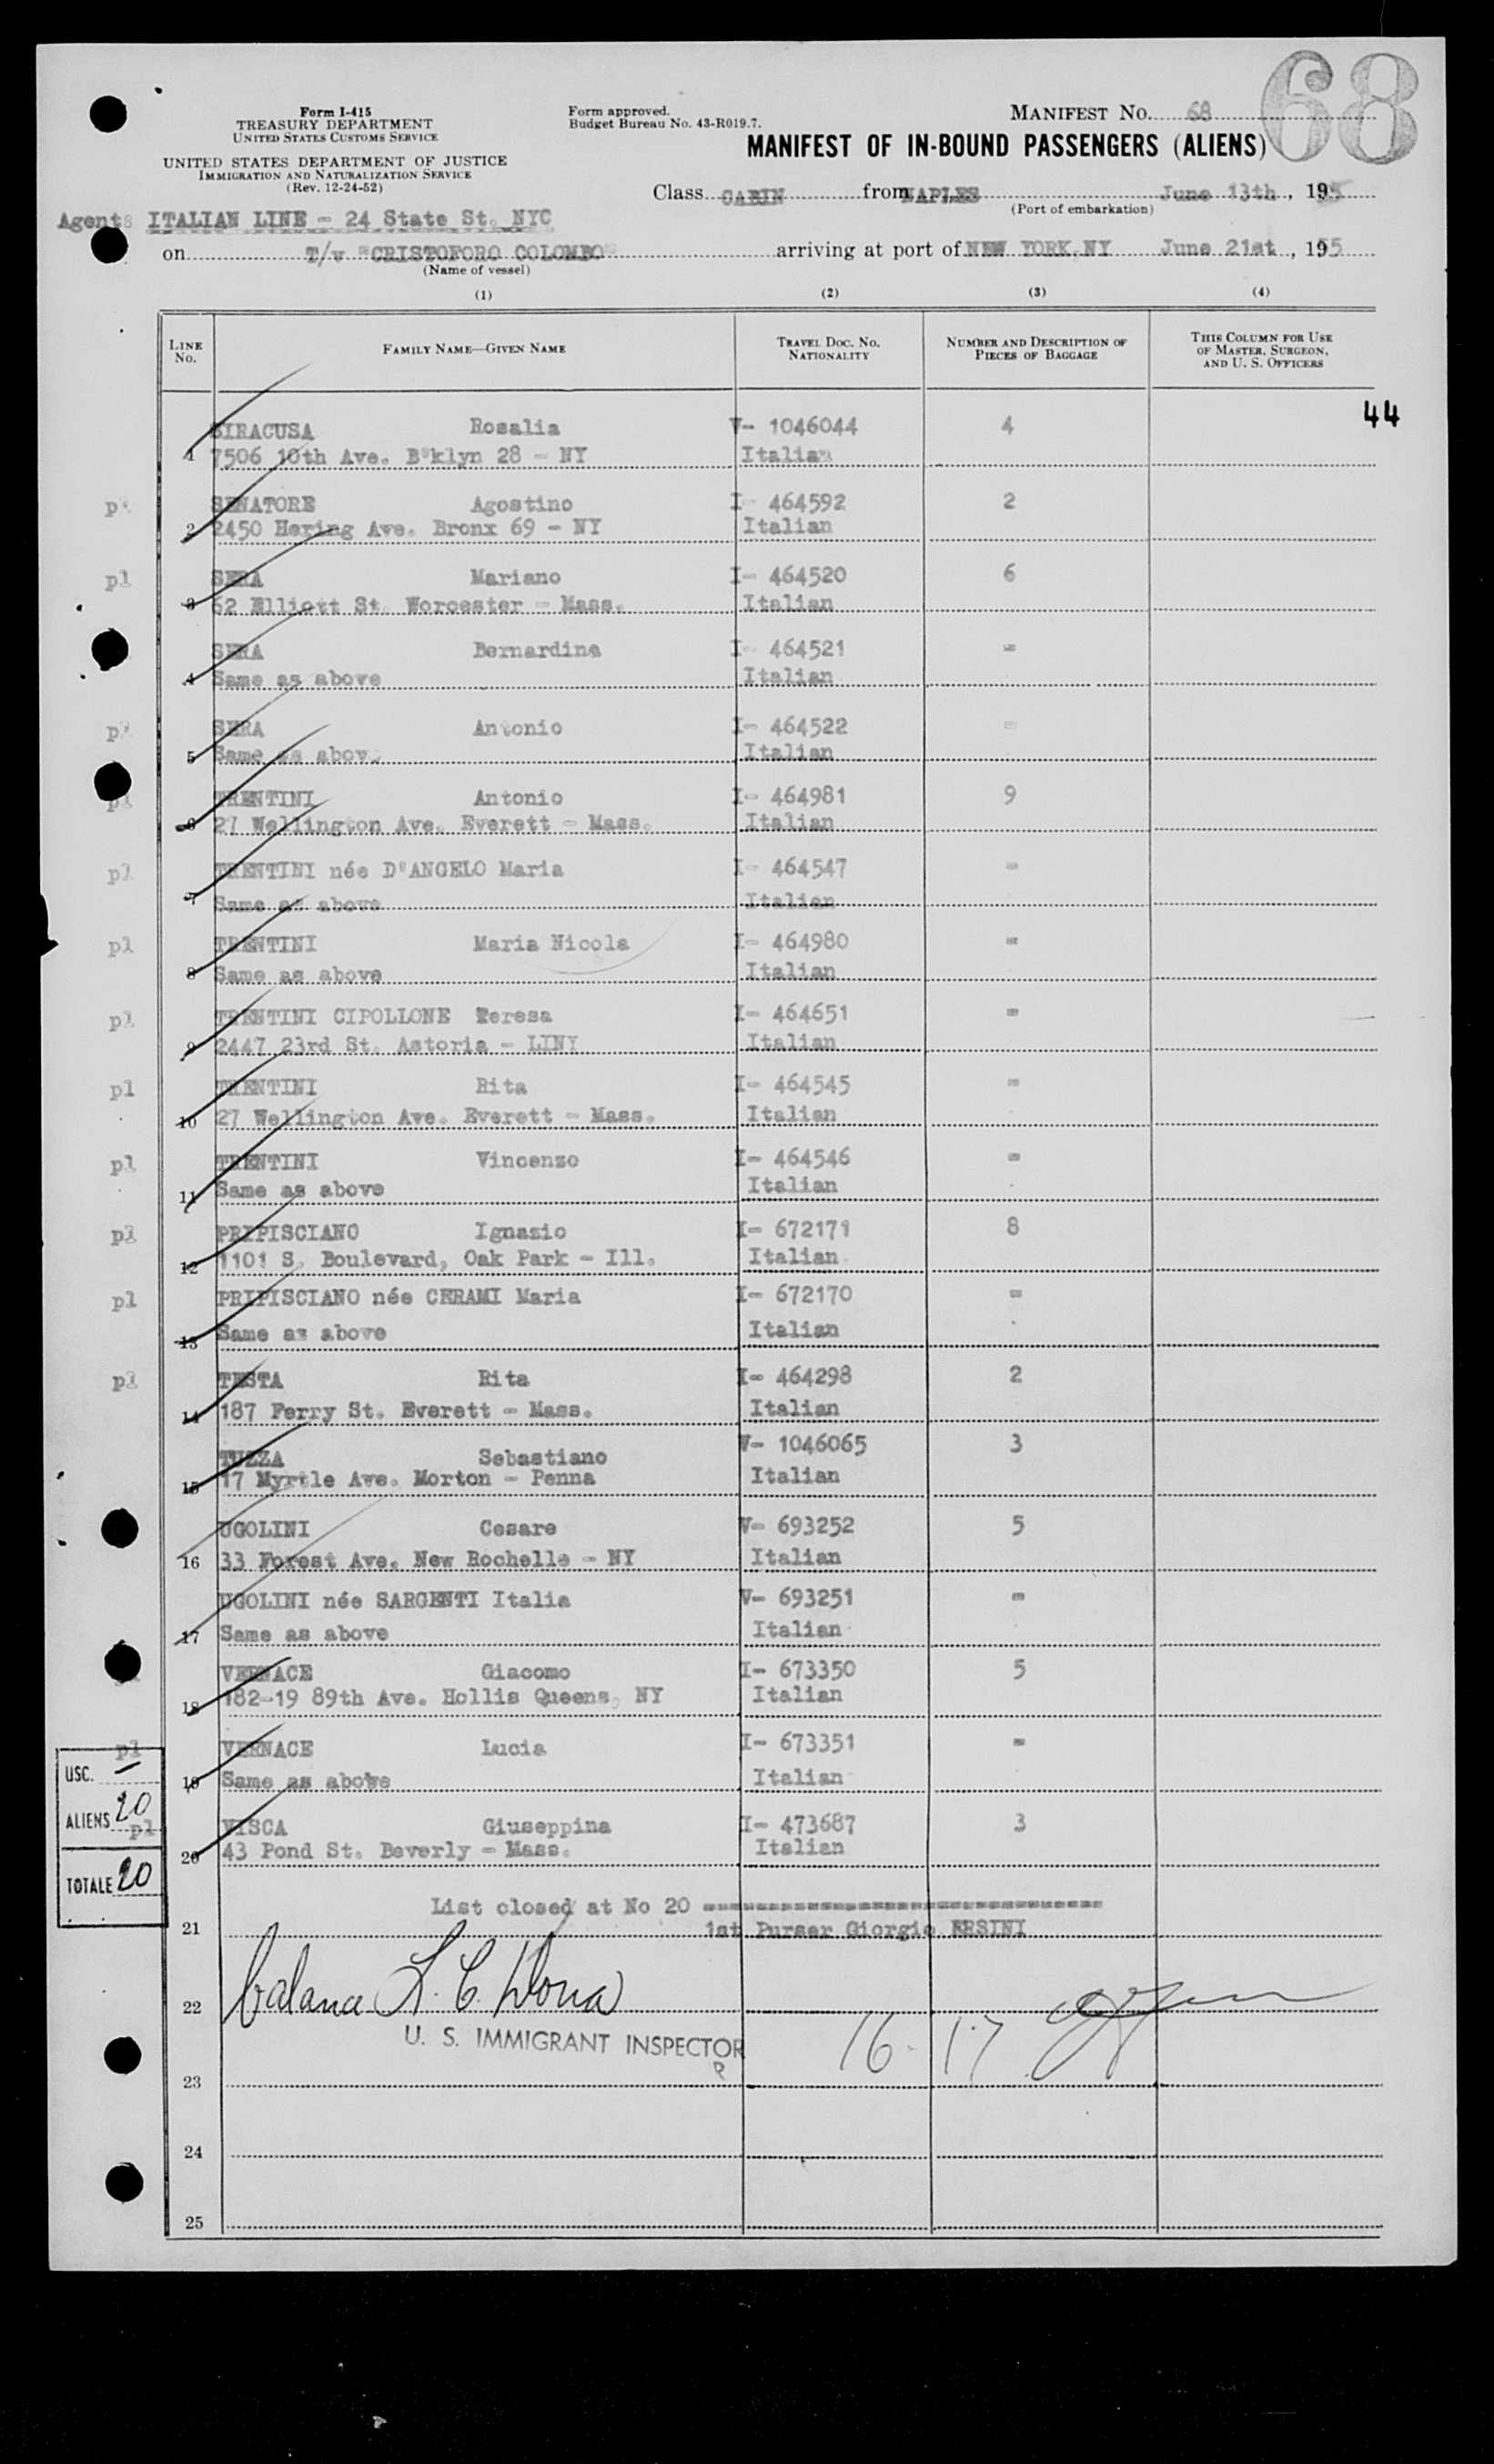 68
Form I-415
TREASURY DEPARTMENT
UNITED STATES CUSTOMS SERVICE
UNITED STATES DEPARTMENT OF JUSTICE
IMMIGRATION AND NATURALIZATION SERVICE
(Rev. 12-24-52)
Form approved.
Budget Bureau No. 43-R019.7.
MANIFEST NO. 68
MANIFEST OF IN-BOUND PASSENGERS (ALIENS)
Class CABIN from NAPLES June 13th, 1955
(Port of embarkation)
Agents ITALIAN LINE - 24 State St. NYC
on T/v "CRISTOFORO COLOMBO" arriving at port of NEW YORK, NY June 21st, 1955
(Name of vessel)
(1) (2) (3) (4)
LINE NO. FAMILY NAME—GIVEN NAME TRAVEL DOC. NO. NATIONALITY NUMBER AND DESCRIPTION OF PIECES OF BAGGAGE THIS COLUMN FOR USE OF MASTER, SURGEON, AND U. S. OFFICERS
44
SIRACUSA Rosalia V- 1046044 4
1 7506 10th Ave. B'klyn 28 - NY Italian
SENATORE Agostino I- 464592 2
2 2450 Hering Ave. Bronx 69 - NY Italian
pl SERA Mariano I- 464520 6
3 62 Elliott St. Worcester - Mass. Italian
SERA Bernardina I- 464521 -
4 Same as above Italian
SERA Antonio I- 464522 -
5 Same as above Italian
pl TRENTINI Antonio I- 464981 9
6 27 Wellington Ave. Everett - Mass. Italian
pl TRENTINI née D'ANGELO Maria I- 464547 -
7 Same as above Italian
pl TRENTINI Maria Nicola I- 464980 -
8 Same as above Italian
pl TRENTINI CIPOLLONE Teresa I- 464651 -
9 2447 23rd St. Astoria - LINY Italian
pl TRENTINI Rita I- 464545 -
10 27 Wellington Ave. Everett - Mass. Italian
pl TRENTINI Vincenzo I- 464546 -
11 Same as above Italian
pl PRIPISCIANO Ignazio I- 672171 8
12 1101 S. Boulevard, Oak Park - Ill. Italian
pl PRIPISCIANO née CERAMI Maria I- 672170 -
13 Same as above Italian
pl TESTA Rita I- 464298 2
14 187 Ferry St. Everett - Mass. Italian
TUZZA Sebastiano V- 1046065 3
15 17 Myrtle Ave. Morton - Penna Italian
UGOLINI Cesare V- 693252 5
16 33 Forest Ave. New Rochelle - NY Italian
UGOLINI née SARGENTI Italia V- 693251 -
17 Same as above Italian
VERNACE Giacomo I- 673350 5
18 182-19 89th Ave. Hollis Queens, NY Italian
pl VERNACE Lucia I- 673351 -
19 Same as above Italian
pl VISCA Giuseppina I- 473687 3
20 43 Pond St. Beverly - Mass. Italian
USC. -
ALIENS 20
TOTALE 20
List closed at No 20
21 1st Purser Giorgio ERSINI
22
U. S. IMMIGRANT INSPECTOR
16 - 17
23
24
25